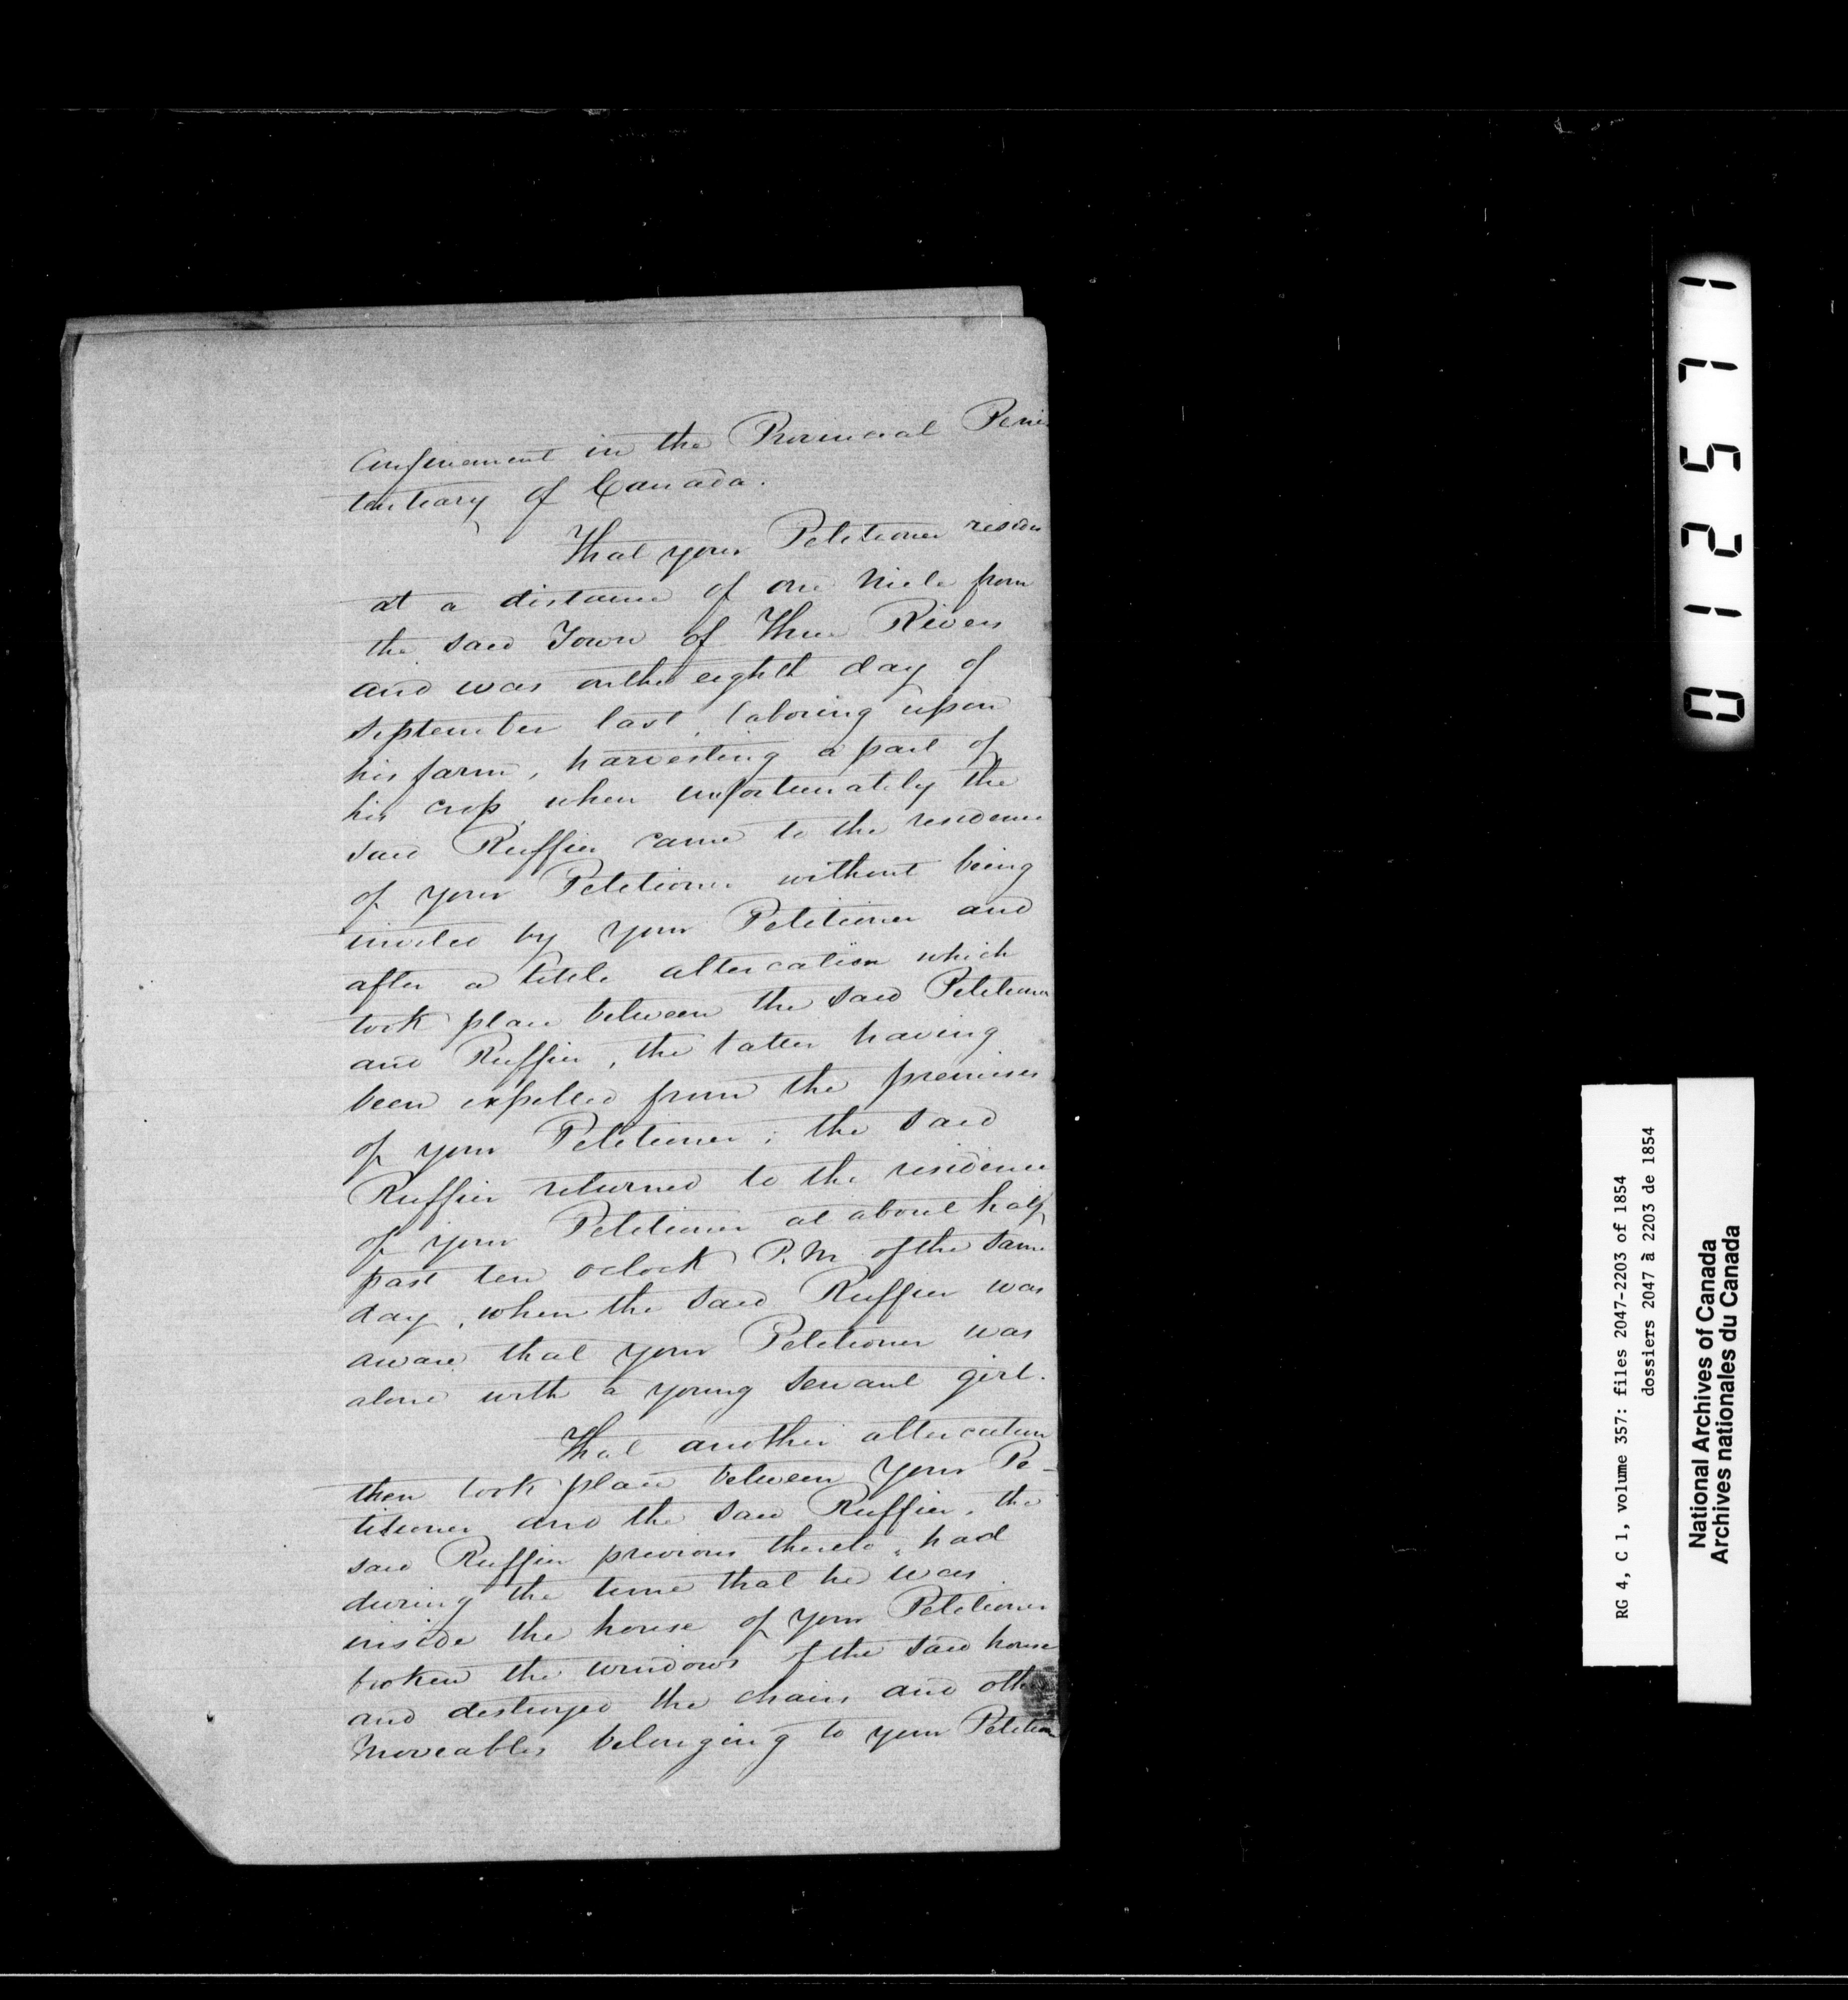 Confinement in the Provincial Peni
tentiary of Canada.
That your Petitioner resides
at a distance of one Mile from
the said Town of Three Rivers
and was on the eighth day of
September last, laboring upon
his farm, harvesting a part of
his crop, when unfortunately the
said Ruffier came to the residence
of your Petitioner without being
invited by your Petitioner and
after a little altercation which
took place between the said Petitioner
and Ruffier, the latter having
been expelled from the premises
of your Petitioner; the said
Ruffier returned to the residence
of your Petitioner at about half
past ten oclock P.M. of the same
day, when the said Ruffier was
aware that your Petitioner was
alone with a young servant girl.
That another altercation
then took place between your Pe-
titioner and the said Ruffier, the
said Ruffier previous thereto, had
during the time that he was
inside the house of your Petitioner
broken the windows of the said house
and destroyed the chairs and other
Moveables belonging to your Petition
012571
RG 4, C 1, volume 357: files 2047-2203 of 1854
dossiers 2047 à 2203 de 1854
National Archives of Canada
Archives nationales du Canada